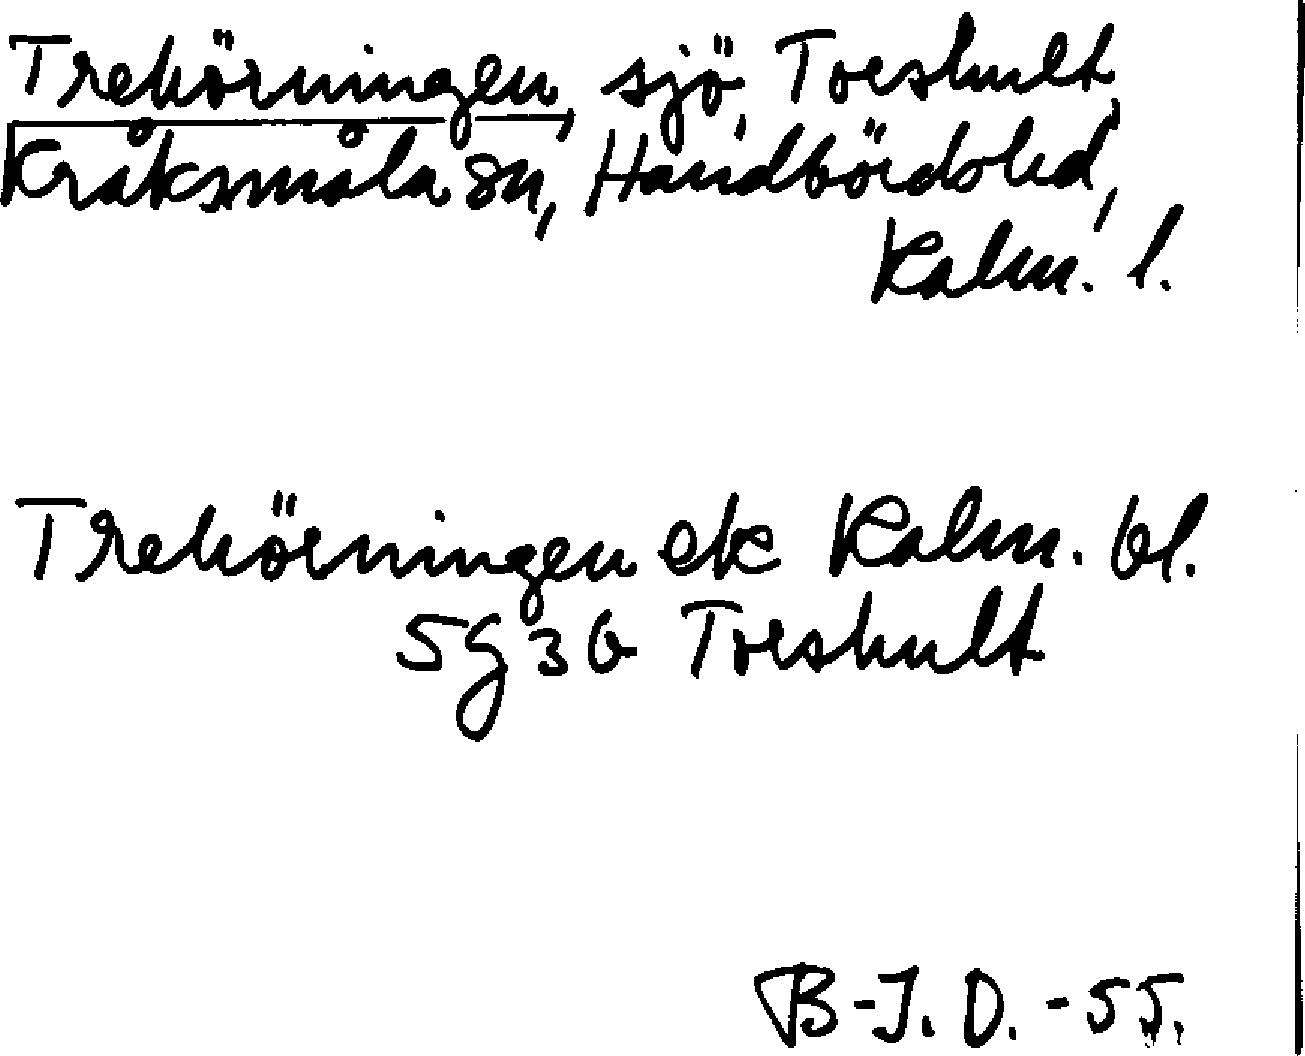 Trehörningen, sjö, Toeshult,
Kråksmåla sn, Handbördshd,
Kalm. l.
Trehörningen ek Kalm. bl.
5g36 Toeshult
B-J. D. -55.